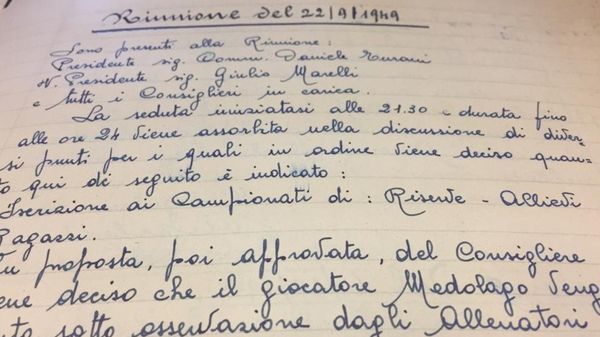 Riunione del 22/9/1949
Sono presenti alla Riunione:
Presidente sig. Comm. Daniele Turani
V. Presidente sig. Giulio Marelli
e tutti i Consiglieri in carica.
La seduta iniziatasi alle 21.30 e durata fino
alle ore 24 viene assorbita nella discussione di diver-
si punti per i quali in ordine viene deciso quan-
to qui di seguito è indicato:
Iscrizione ai Campionati di: Riserve - Allievi
Ragazzi.
Su proposta, poi approvata, del Consigliere
ene deciso che il giocatore Medolago veng
uto sotto osservazione dagli Allenatori